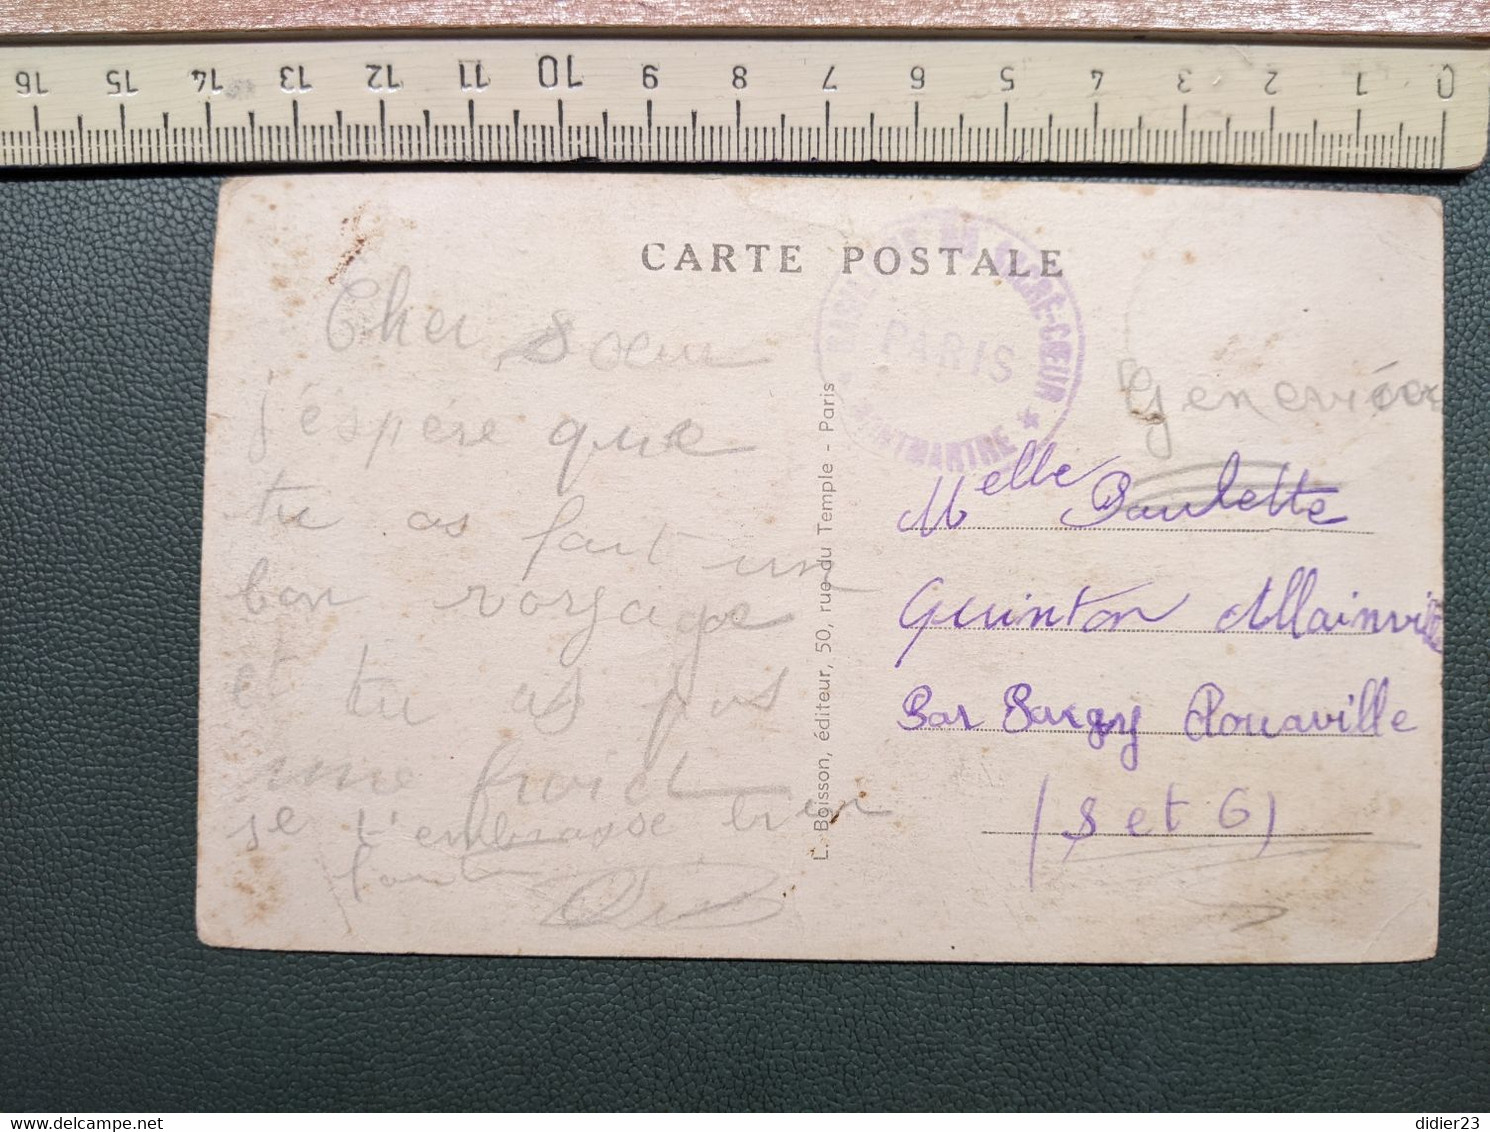 16 15 14 13 12 11 10 9 8 7 6 5 4 3 2 1 0
CARTE POSTALE
BASILIQUE DU SACRÉ-CŒUR
PARIS
★ MONTMARTRE ★
Cher Soeur
j'éspére que
tu as fait un
bon voryage
et tu as pas
froid
je t'embrasse bien
L. Boisson, éditeur, 50, rue du Temple - Paris
Geneviève
Melle Paulette
Quinton Allainville
Par Rouaville
(S et O)
didier23